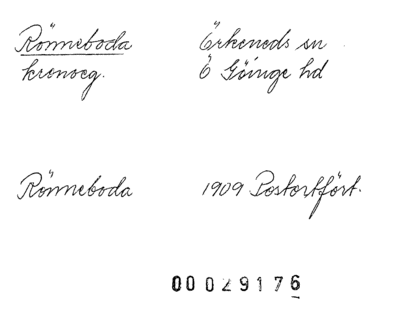 Rönneboda Örkeneds sn
kronoeg. Ö Göinge hd
Rönneboda 1909 Postortfört.
00029176